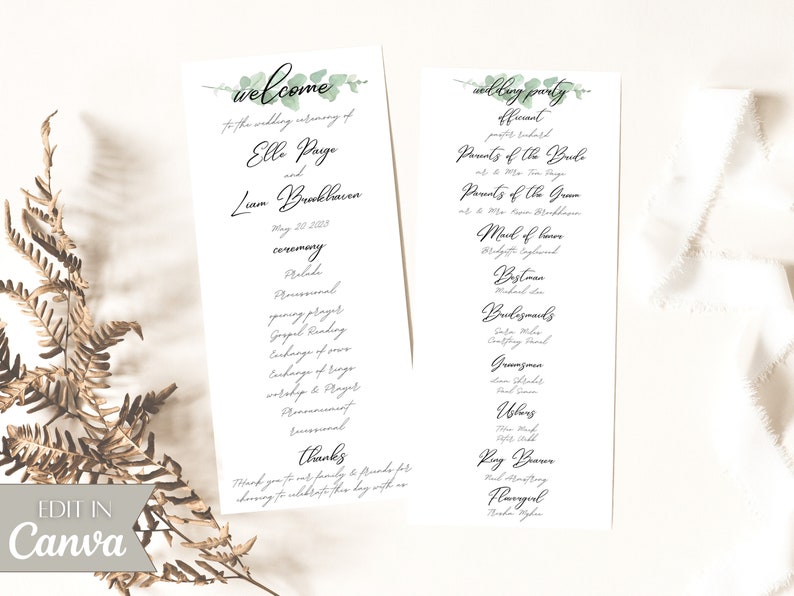 welcome
to the wedding ceremony of
Elle Paige
and
Liam Brookhaven
May 20, 2023
ceremony
Prelude
Processional
opening prayer
Gospel Reading
Exchange of vows
Exchange of rings
worship & Prayer
Pronouncement
recessional
thanks
Thank you to our family & friends for
choosing to celebrate this day with us
wedding party
officiant
pastor richard
Parents of the Bride
mr & Mrs Tom Paige
Parents of the Groom
mr & Mrs Kevin Brookhaven
Maid of honor
Bridgette Englewood
Bestman
Michael Lee
Bridesmaids
Sara Miles
Courtney Panel
Groomsmen
Liam Shrader
Paul Simon
Ushers
Peter Webb
Ring Bearer
Neil Armstrong
Flowergirl
Trisha
EDIT IN
Canva